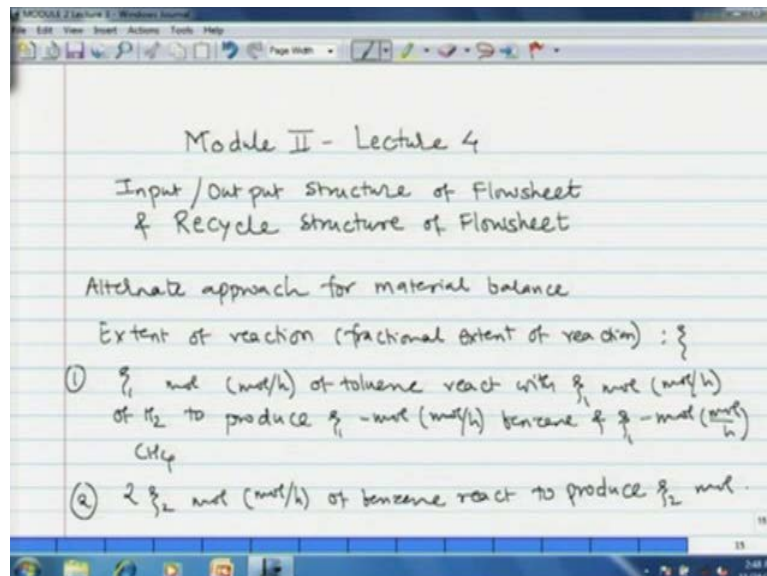 MODULE 2 Lecture 3 - Windows Journal
File Edit View Insert Actions Tools Help
Page Width
Module II - Lecture 4
Input / Output structure of Flowsheet
& Recycle structure of Flowsheet
Alternate approach for material balance
Extent of reaction (fractional extent of reaction) : ξ
① ξ₁ mol (mol/h) of toluene react with ξ₁ mol (mol/h)
of H₂ to produce ξ₁ -mol (mol/h) benzene & ξ₁ -mol (mol/h)
CH₄
② 2 ξ₂ mol (mol/h) of benzene react to produce ξ₂ mol.
15
15